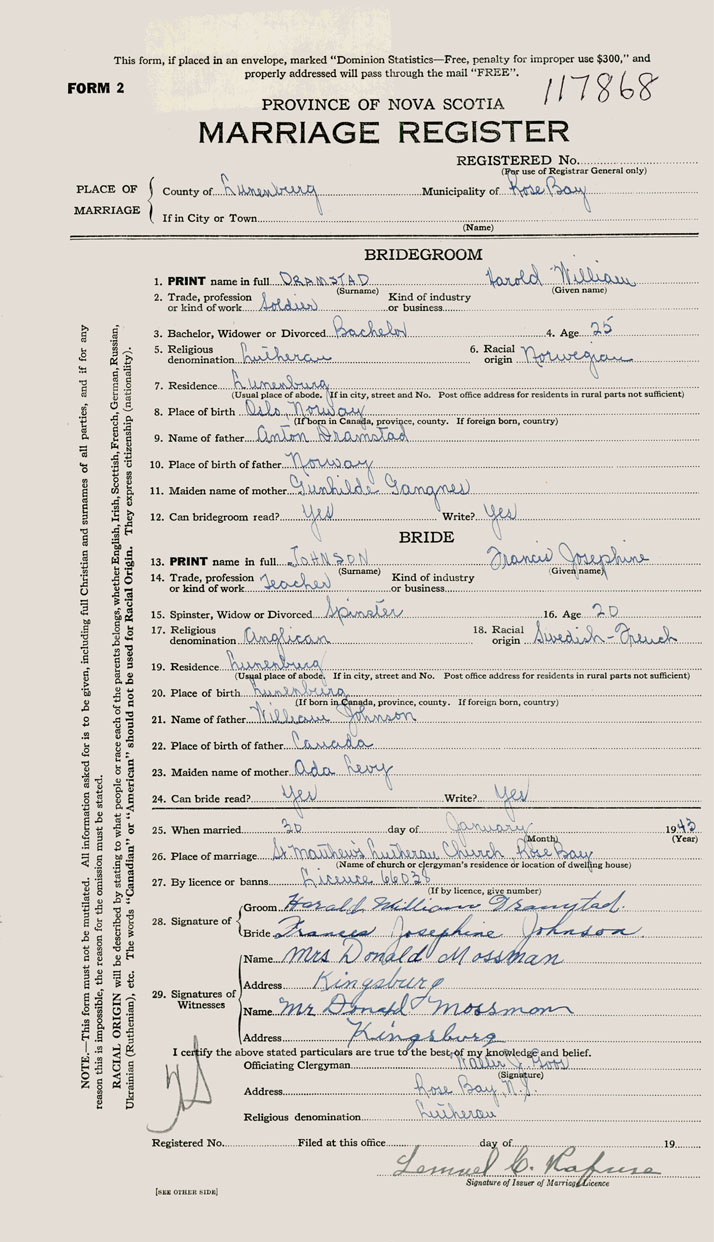 This form, if placed in an envelope, marked "Dominion Statistics—Free, penalty for improper use $300," and
properly addressed will pass through the mail "FREE".
FORM 2
117868
PROVINCE OF NOVA SCOTIA
MARRIAGE REGISTER
REGISTERED No.
(For use of Registrar General only)
PLACE OF MARRIAGE
County of Lunenburg Municipality of Rose Bay
If in City or Town
(Name)
BRIDEGROOM
1. PRINT name in full DRAMSTAD Harold William
(Surname) (Given name)
2. Trade, profession or kind of work Soldier Kind of industry or business
3. Bachelor, Widower or Divorced Bachelor 4. Age 25
5. Religious denomination Lutheran 6. Racial origin Norwegian
7. Residence Lunenburg
(Usual place of abode. If in city, street and No. Post office address for residents in rural parts not sufficient)
8. Place of birth Oslo, Norway
(If born in Canada, province, county. If foreign born, country)
9. Name of father Anton Dramstad
10. Place of birth of father Norway
11. Maiden name of mother Gunhilde Gangnes
12. Can bridegroom read? Yes Write? Yes
BRIDE
13. PRINT name in full JOHNSON Francis Josephine
(Surname) (Given name)
14. Trade, profession or kind of work Teacher Kind of industry or business
15. Spinster, Widow or Divorced Spinster 16. Age 20
17. Religious denomination Anglican 18. Racial origin Swedish-French
19. Residence Lunenburg
(Usual place of abode. If in city, street and No. Post office address for residents in rural parts not sufficient)
20. Place of birth Lunenburg
(If born in Canada, province, county. If foreign born, country)
21. Name of father William Johnson
22. Place of birth of father Canada
23. Maiden name of mother Ada Levy
24. Can bride read? Yes Write? Yes
25. When married 30 day of January 1943
(Month) (Year)
26. Place of marriage St. Matthew's Lutheran Church, Rose Bay
(Name of church or clergyman's residence or location of dwelling house)
27. By licence or banns Licence 66038
(If by licence, give number)
28. Signature of
Groom Harald William Dramstad.
Bride Francis Josephine Johnson
29. Signatures of Witnesses
Name Mrs Donald Mossman
Address Kingsburg
Name Mr Donald Mossman
Address Kingsburg
I certify the above stated particulars are true to the best of my knowledge and belief.
Officiating Clergyman Walter J. Goos
(Signature)
Address Rose Bay, N.S.
Religious denomination Lutheran
Registered No. Filed at this office day of 19
Lemuel C. Rafuse
Signature of Issuer of Marriage Licence
[SEE OTHER SIDE]
NOTE.—This form must not be mutilated. All information asked for is to be given, including full Christian and surnames of all parties, and if for any
reason this is impossible, the reason for the omission must be stated.
RACIAL ORIGIN will be described by stating to what people or race each of the parents belongs, whether English, Irish, Scottish, French, German, Russian,
Ukrainian (Ruthenian), etc. The words "Canadian" or "American" should not be used for Racial Origin. They express citizenship (nationality).